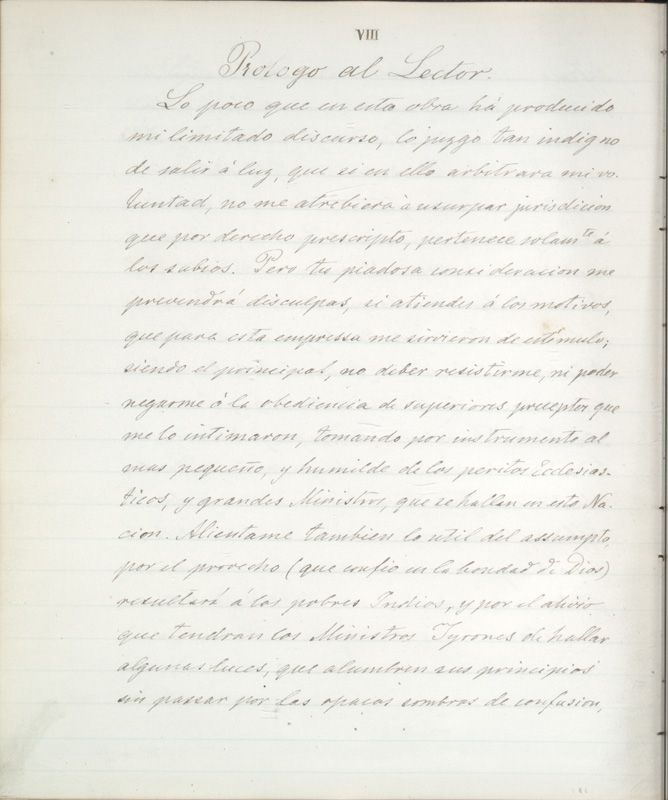 VIII
Prologo al Lector.
Lo poco que en esta obra há producido
mi limitado discurso, lo juzgo tan indigno
de salir á luz, que si en ello arbitrara mi vo-
luntad, no me atrebiera à usurpar jurisdicion
que por derecho prescripto, pertenece solam.te á
los sabios. Pero tu piadosa consideracion me
prevendrá disculpas, si atiendes á los motivos,
que para esta empressa me sirvieron de estimulo;
siendo el principal, no deber resistirme, ni poder
negarme á la obediencia de superiores preceptos que
me lo intimaron, tomando por instrumento al
mas pequeño, y humilde de los peritos Ecclesias-
ticos, y grandes Ministros, que se hallan en esta Na-
cion. Alientame tambien lo util del assumpto,
por el provecho (que confio en la bondad de Dios)
resultará á los pobres Indios, y por el alivio
que tendran los Ministros Tyrones de hallar
algunas luces, que alumbren sus principios
sin passar por las opacas sombras de confusion,